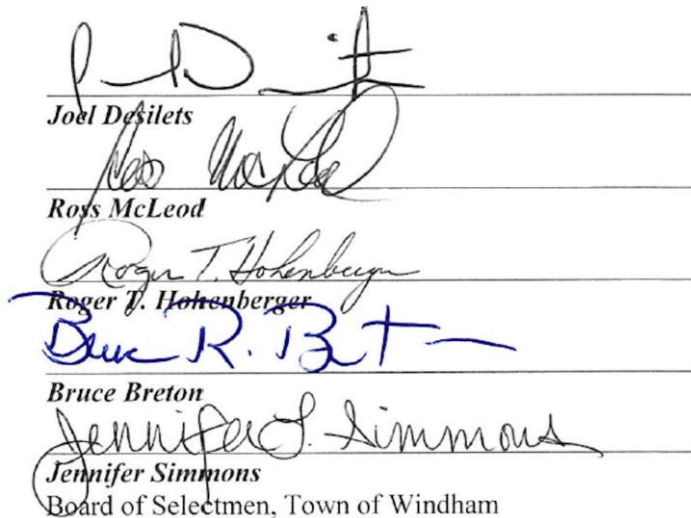 Joel Desilets
Ross McLeod
Ross McLeod
Roger T. Hohenberger
Roger T. Hohenberger
Bruce R. Breton
Bruce Breton
Jennifer L. Simmons
Jennifer Simmons
Board of Selectmen, Town of Windham